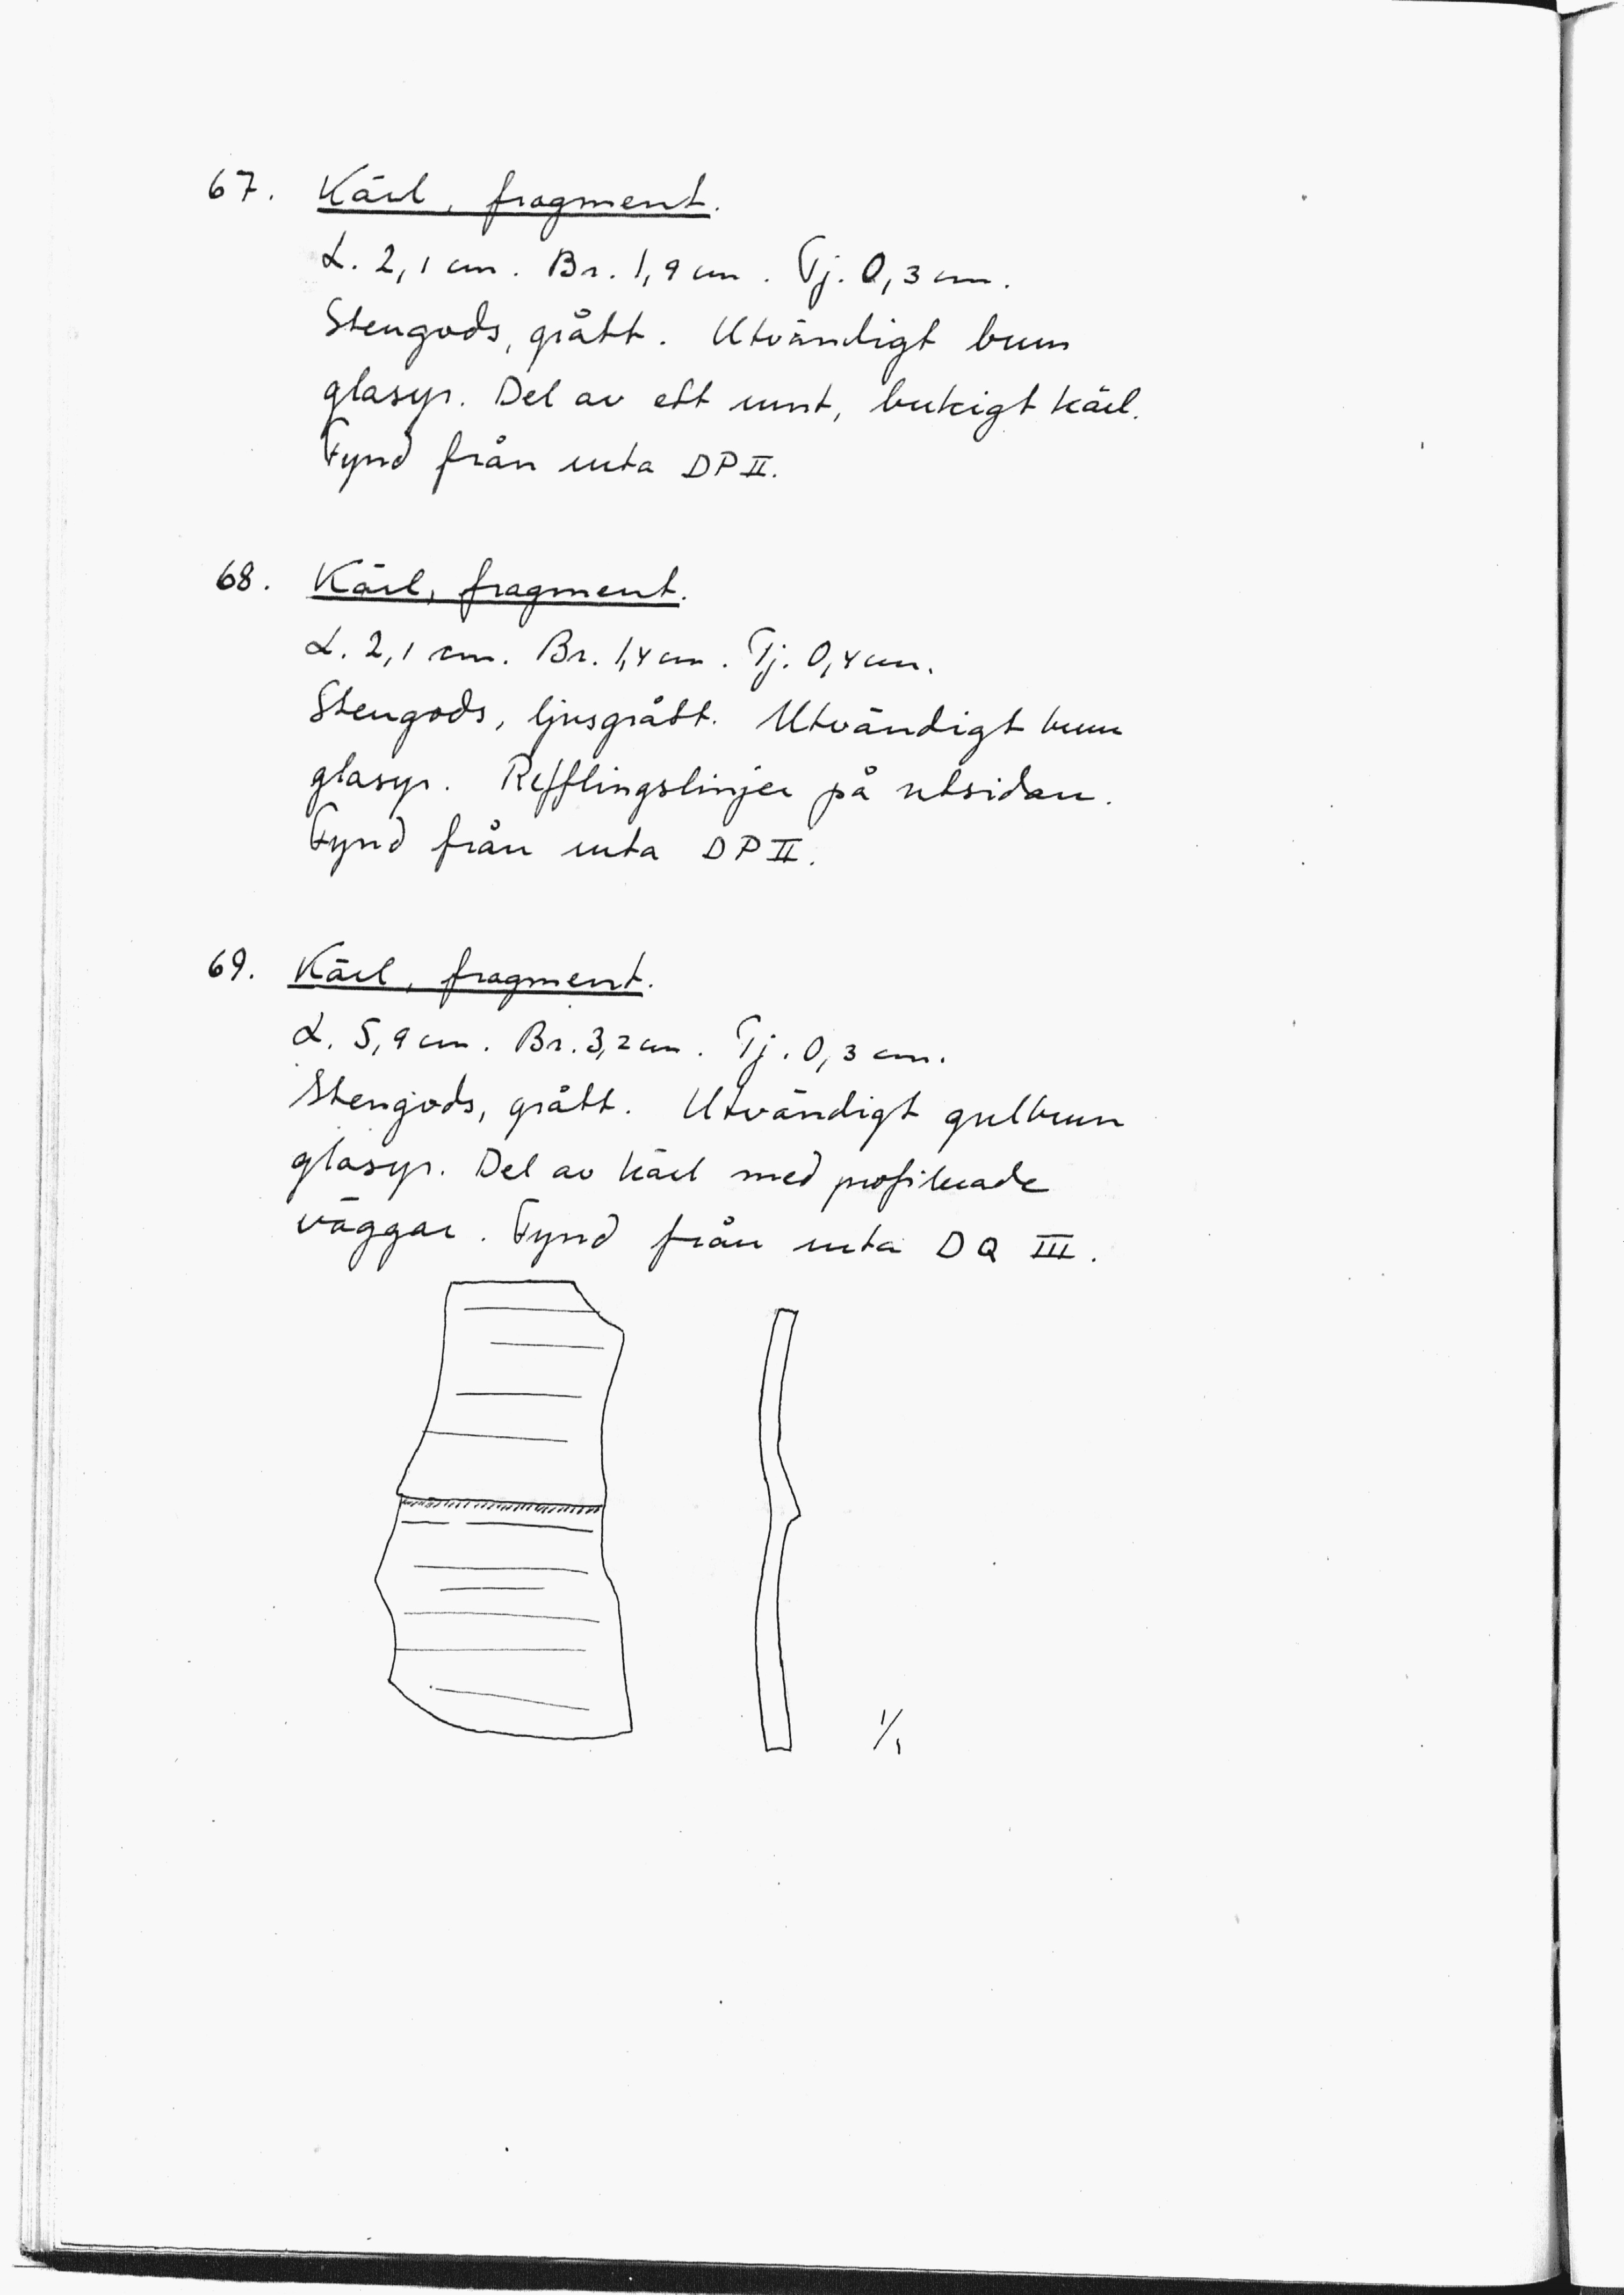 67. Kärl, fragment.
L. 2,1 cm. Br. 1,9 cm. Tj. 0,3 cm.
Stengods, grått. Utvändigt brun
glasyr. Del av ett runt, bukigt kärl.
Fynd från ruta DP II.
68. Kärl, fragment.
L. 2,1 cm. Br. 1,4 cm. Tj. 0,4 cm.
Stengods, ljusgrått. Utvändigt brun
glasyr. Refflingslinjer på utsidan.
Fynd från ruta DP II.
69. Kärl, fragment.
L. 5,9 cm. Br. 3,2 cm. Tj. 0,3 cm.
Stengods, grått. Utvändigt gulbrun
glasyr. Del av kärl med profilerade
väggar. Fynd från ruta DQ III.
1/1